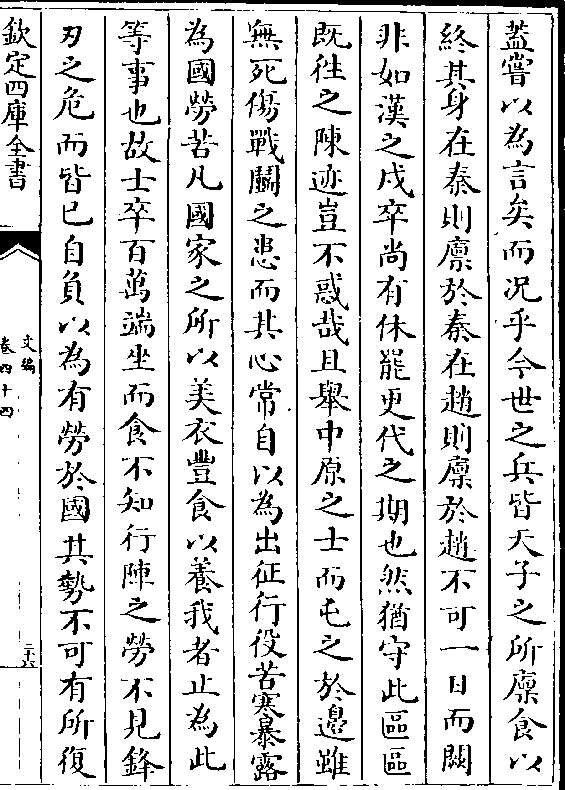 蓋嘗以為言矣而况乎今世之兵皆天子之所廪食以
終其身在秦則廪於秦在趙則廪於趙不可一日而闕
非如漢之戍卒尚有休罷更代之期也然猶守此區區
既徃之陳迹豈不惑哉且舉中原之士而屯之於邉雖
無死傷戰鬬之患而其心常自以為出征行役苦寒暴露
為國勞苦凡國家之所以美衣豐食以養我者止為此
等事也故士卒百萬端坐而食不知行陣之勞不見鋒
刃之危而皆已自負以為有勞於國其勢不可有所復
欽定四庫全書
文編
卷四十四
二十六